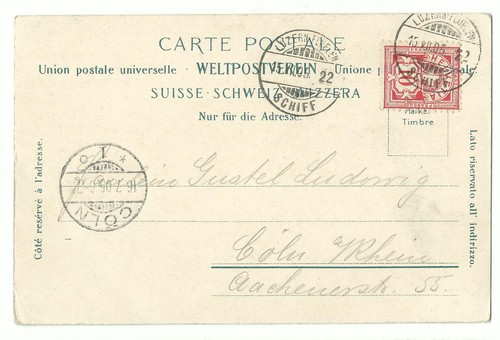 CARTE POSTALE
Union postale universelle WELTPOSTVEREIN Unione postale
SUISSE · SCHWEIZ · SVIZZERA
Nur für die Adresse.
SCHIFF
22
Marke
Timbre
Côté reservé à l'adresse.
Lato riservato all' indirizzo.
CÖLN
Gustel Ludwig
Cöln Rhein
Aachenerstr. 55.